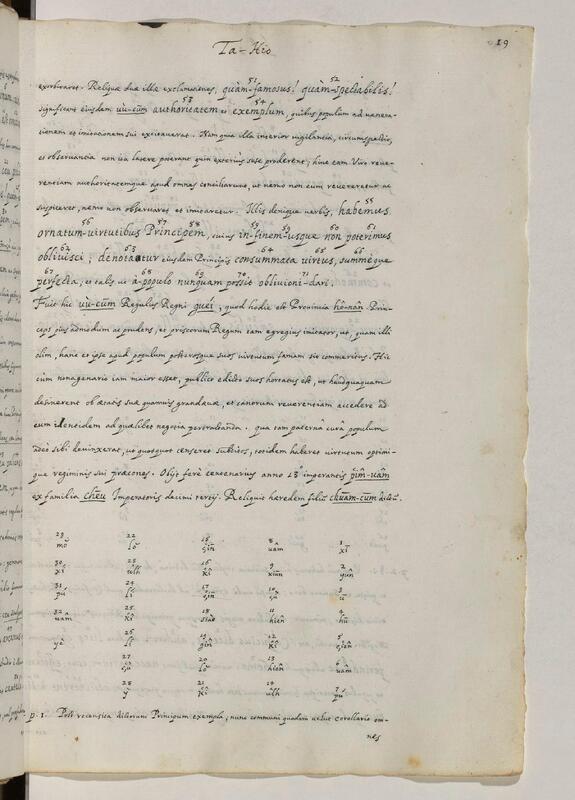 Ta-Hio
19
exorbitaret. Reliquæ duæ illæ exclamationes, quàm-famosus! quàm-spectabilis!
significant eiusdem vù-cum authoritatem et exemplum, quibus populum ad venera-
tionem et imitationem sui excitaverat. Nam quia illa interior vigilantia, circumspectio,
et observantia non ita latere poterant quin exteriùs sese proderent; hinc eam Viro reve-
rentiam authoritatemque apud omnes conciliarunt, ut nemo non eum revereretur ac
suspiceret, nemo non observaret et imitaretur. Illis denique verbis, habemus
ornatum-virtutibus Principem, cuius in-finem-usque non poterimus
oblivisci; denotatur eiusdem Principis consummata virtus, summèque
perfecta, et talis ut à-populo nunquam possit oblivioni-dari.
Fuit hic vù-cum Regulus Regni guéi, quod hodie est Provincia hô-nân Prin-
ceps pius admodum ac prudens, et priscorum Regum tam egregius imitator, ut, quam illi
olim, hanc et ipse apud populum posterosque suos virtutum famam sit commeritus. Hic
cùm nonagenario iam maior esset, publico edicto suos hortatus est, ut haudquaquam
desinerent ob ætatis suæ quamvis grandævæ, et canorum reverentiam accedere ad
eum identidem ad quælibet negotia pertractanda. qua tam paterna curâ populum
adeò sibi devinxerat, ut quotquot censeret subditos, totidem haberet virtutum optimi-
que regiminis sui præcones. Obijt ferè centenarius anno 13° imperantis pim-vam
ex familia cheu Imperatoris decimi tertij. Reliquit hæredem filiū chuam-cum dictū.
29 22 15 8 1
mô lô gin vâm xi
30 23 16 9 2
xi ùlh ki xiun yun
31 24 17 10 3
pú li sin sù û
32 25 18 11 4
vâm ki siào hien hū
26 19 12 5
yè li gin ki çien
27 20 13 6
çù lo hien vâm
28 21 14 7
ỳ ki ùlh pú
p. 1. Post recensita dictorum Principum exempla, nunc communi quodam velut corollario om-
nes